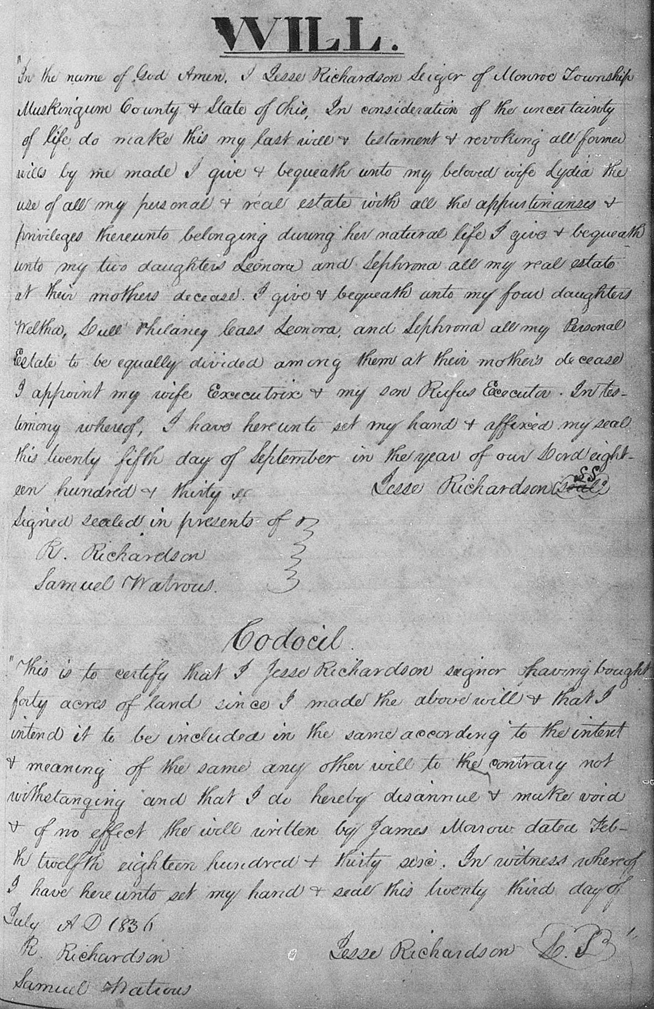 WILL.
"In the name of God Amen, I Jesse Richardson Seigor of Monroe Township
Muskingum County & State of Ohio, In consideration of the uncertainty
of life do make this my last will & testament & revoking all former
wills by me made I give & bequeath unto my beloved wife Lydia the
use of all my personal & real estate with all the appurtinanses &
privileges thereunto belonging during her natural life I give & bequeath
unto my two daughters Leonora and Sephrona all my real estate
at their mothers decease. I give & bequeath unto my four daughters
Weltha, Philaney Cass Leonora, and Sephrona all my Personal
Estate to be equally divided among them at their mother's decease
I appoint my wife Executrix & my son Rufus Executor. In tes-
timony whereof, I have hereunto set my hand & affixed my seal
this twenty fifth day of September in the year of our Lord eight-
een hundred & thirty Jesse Richardson
Signed sealed in presents of
R. Richardson
Samuel Watrous.
Codocil.
"This is to certify that I Jesse Richardson signor having bought
forty acres of land since I made the above will & that I
intend it to be included in the same according to the intent
& meaning of the same any other will to the contrary not
withstanging and that I do hereby disannul & make void
& of no effect the will written by James Morrow dated Feb-
th twelfth eighteen hundred & thirty six. In witness whereof
I have hereunto set my hand & seal this twenty third day of
July A D 1836
R. Richardson Jesse Richardson L. S"
Samuel Watrous